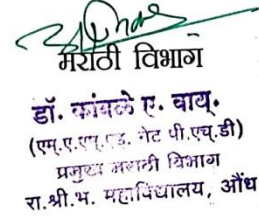 मराठी विभाग
डॉ. कांबळे ए. वाय.
(एम.ए.एम.एड. नेट पी.एच.डी)
प्रमुख मराठी विभाग
रा.श्री.भ. महाविद्यालय, औंध